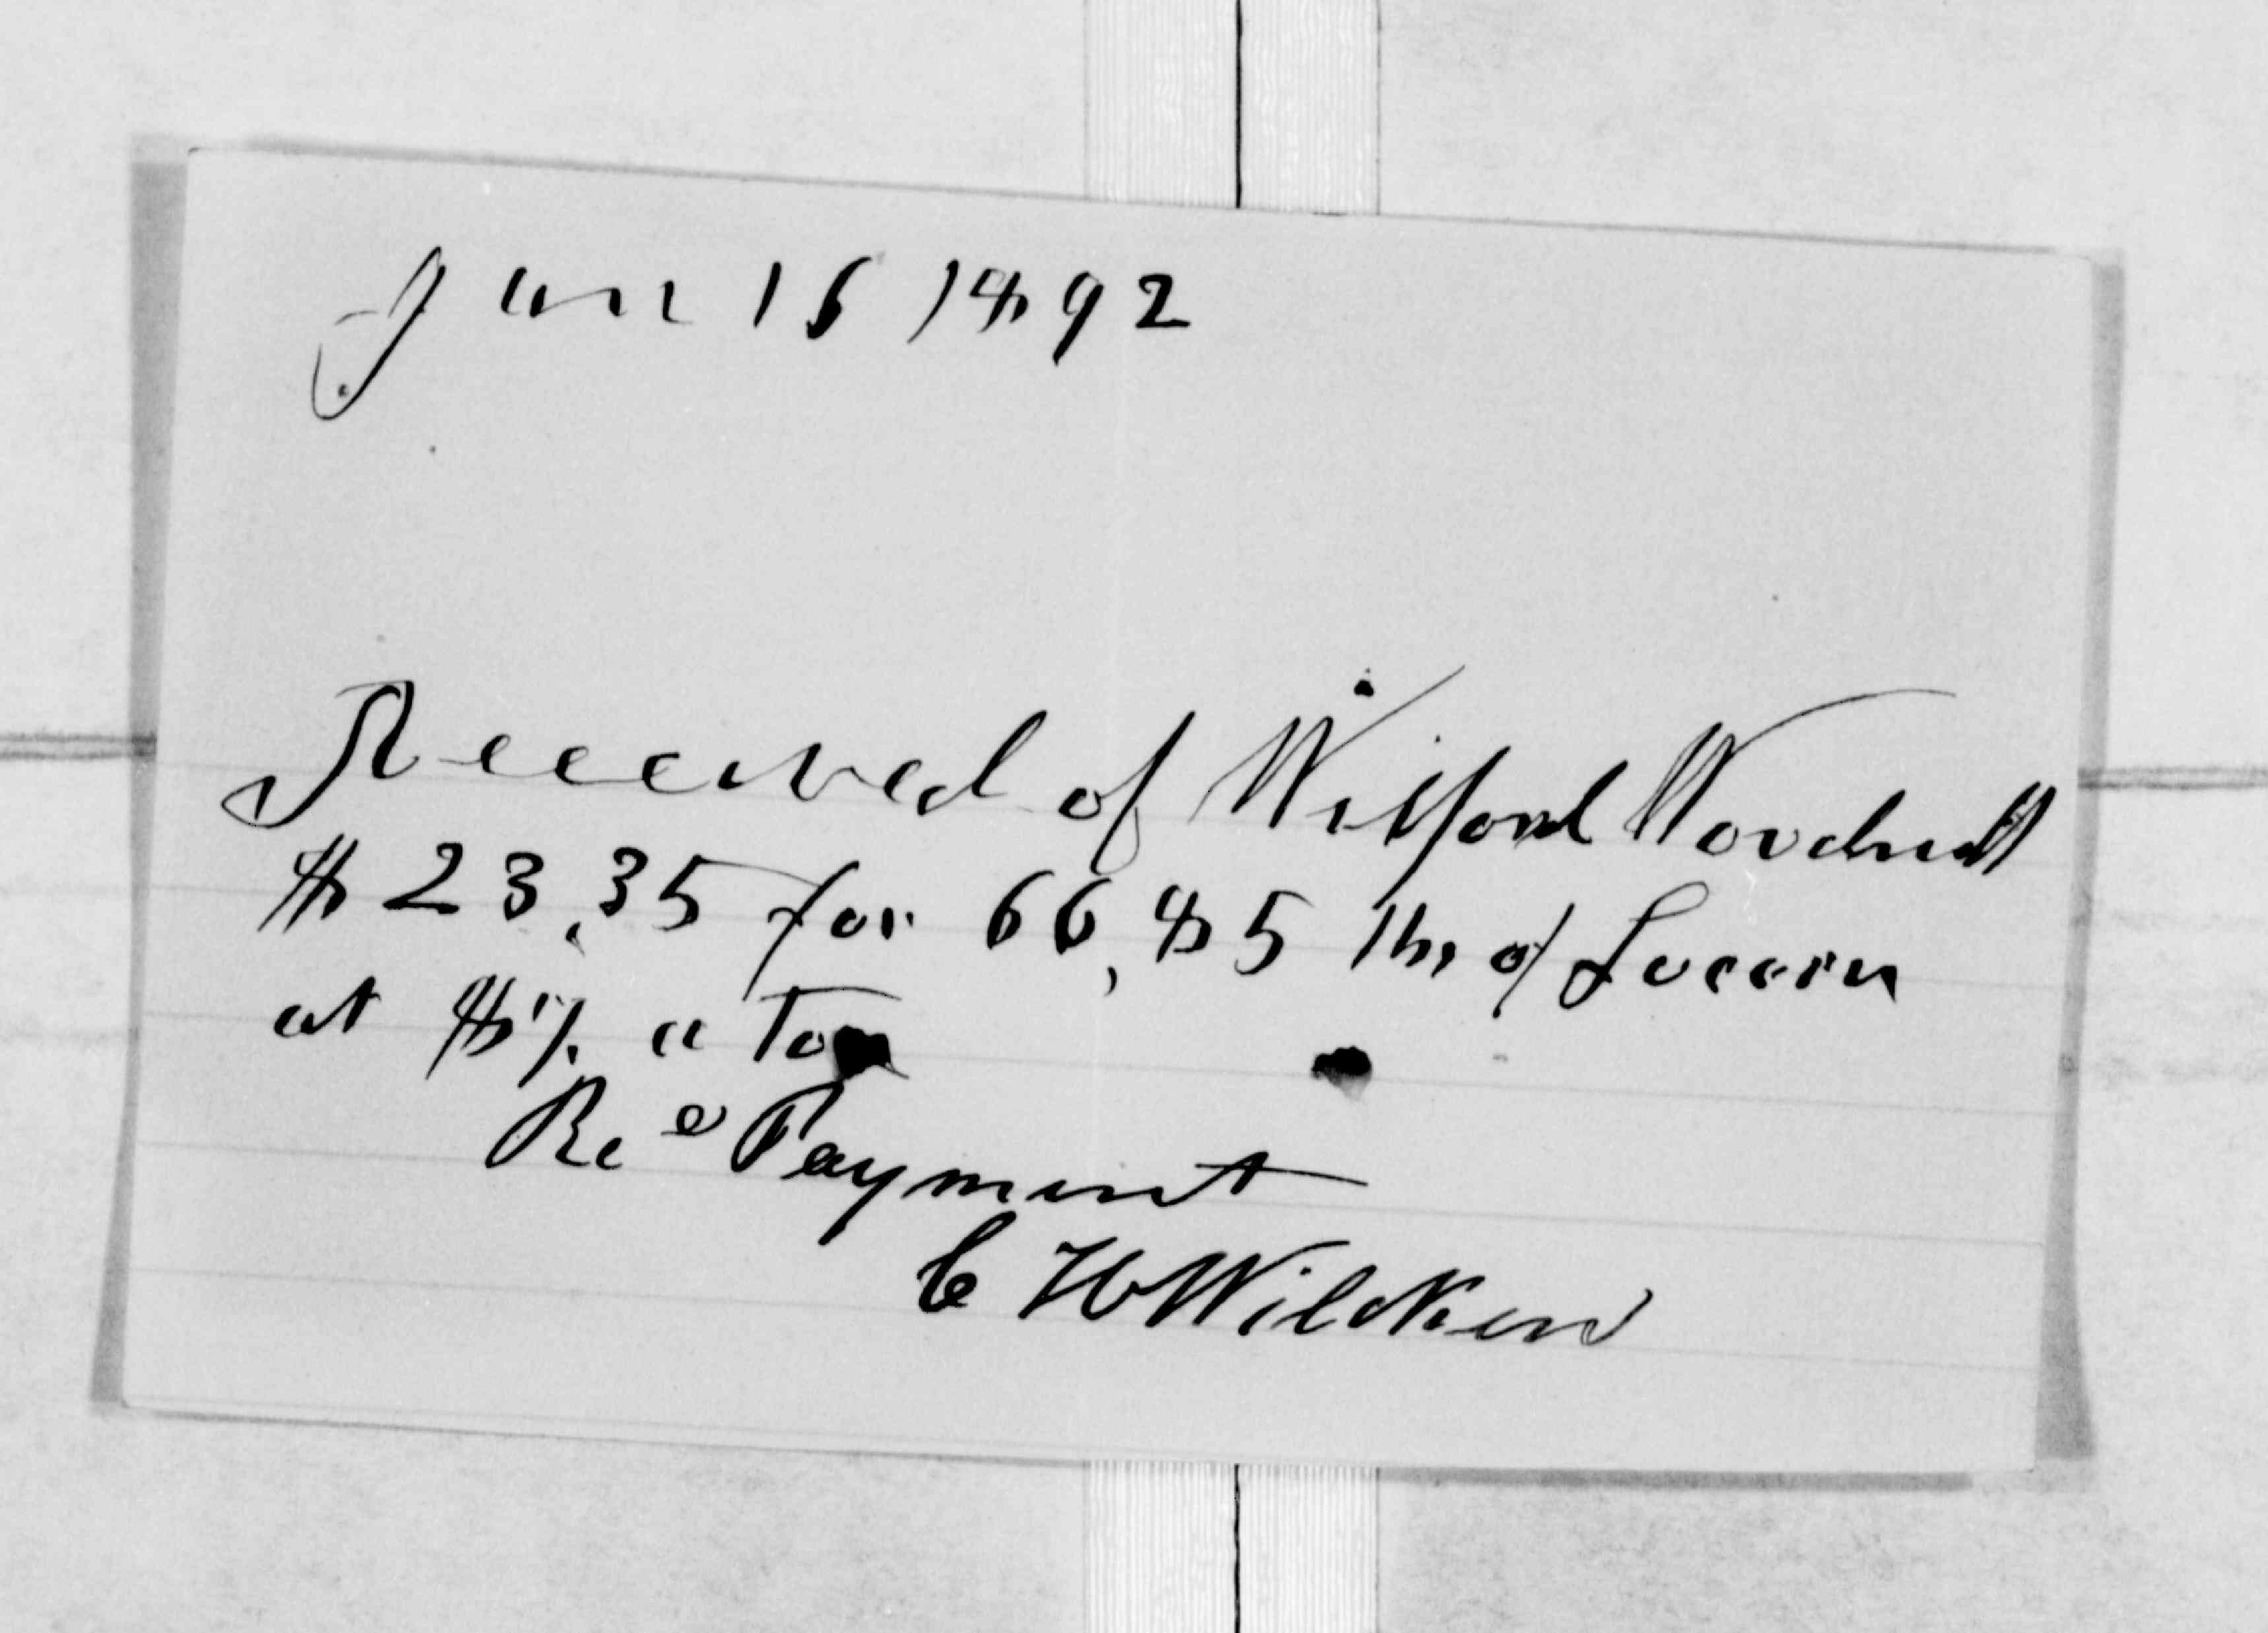 June 16 1892
Received of Wilford Woodruff
$23.35 for 66,85 lbs of Lucern
at $7. a Ton
Recd Payment
C H Wilcken